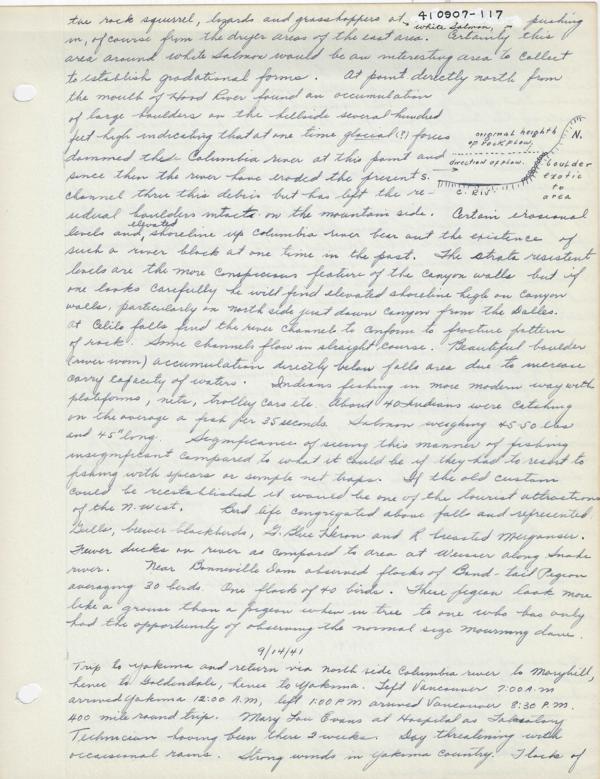 the rock squirrel, lizards and grasshoppers at white Salmon, pushing
410907-117
in, of course from the dryer areas of the east area. Certainly this
area around white Salmon would be an interesting area to collect
to establish gradational forms. At point directly north from
the mouth of Hood River found an accumulation
of large boulders on the hillside several hundred
feet high indicating that at one time glacial (?) forces
dammed the Columbia river at this point and
since then the river have eroded the present
channel thru this debris but has left the re-
sidual boulders intact on the mountain side. Certain erosional
original heighth
of rock flow.
N.
direction of flow.
S.
C. Riv
boulder
exotic
to
area
levels and elevated shoreline up Columbia river bear out the existence of
such a river block at one time in the past. The strata resistent
levels are the more conspicious feature of the canyon walls but if
one looks carefully he will find elevated shoreline high on canyon
walls, particularly on north side just down canyon from the Dalles.
At Celilo falls find the river channel to conform to fracture pattern
of rock. Some channels flow in straight course. Beautiful boulder
(river worn) accumulation directly below falls area due to increase
carry capacity of waters. Indians fishing in more modern way with
platforms, nets, trolley cars etc. About 40 Indians were catching
on the average a fish per 35 seconds. Salmon weighing 45-50 lbs
and 45" long. Significance of seeing this manner of fishing
insignificant compared to what it could be if they had to resort to
fishing with spears or simple net traps. If the old custom
could be reestablished it would be one of the tourist attractions
of the N. West. Bird life congregated above falls and represented
Gulls, brewer blackbirds, G. Blue Heron and R breasted Merganser.
Fewer ducks on river as compared to area at Weiser along Snake
river. Near Bonneville Dam observed flocks of Band-tail Pigeon
averaging 30 birds. One flock of 40 birds. These pigeon look more
like a grouse than a pigeon when in tree to one who has only
had the opportunity of observing the normal size mourning dove.
9/14/41
Trip to Yakima and return via north side Columbia river to Maryhill,
hence to Goldendale, hence to Yakima. Left Vancouver 7:00 A.M
arrived Yakima 12:00 A.M, left 1:00 P.M arrived Vancouver 8:30 P.M.
400 mile round trip. Mary Lou Evans at Hospital as
Technician having been there 2 weeks. Day threatening with
occasional rains. Strong winds in Yakima Country. Flocks of